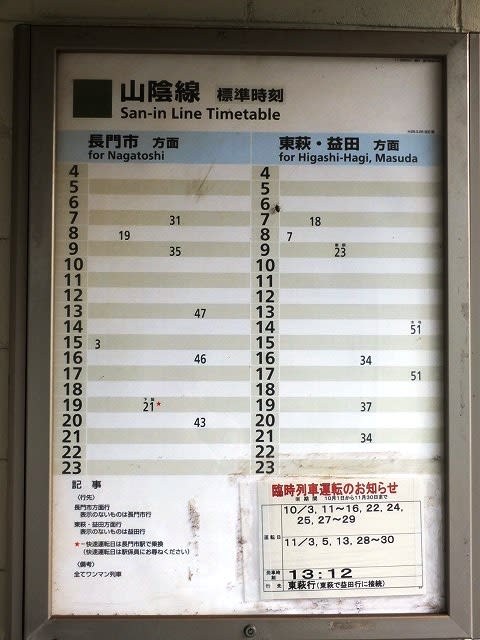 山陰線 標準時刻
San-in Line Timetable
長門市 方面
for Nagatoshi
4
5
6
7 31
8 19
9 35
10
11
12
13 47
14
15 3
16 46
17
18
19 21★
20 43
21
22
23
東萩・益田 方面
for Higashi-Hagi, Masuda
4
5
6
7 18
8 7
9 23
10
11
12
13
14 51
15
16 34
17 51
18
19 37
20
21 34
22
23
記事
〈行先〉
長門市方面行
表示のないものは長門市行
東萩・益田方面行
表示のないものは益田行
★－快速運転日は長門市駅で乗換
(快速運転日は駅係員にお尋ねください)
〈備考〉
全てワンマン列車
臨時列車運転のお知らせ
期間 10月1日から11月30日まで
運転日
10／3, 11～16, 22, 24,
25, 27～29
11／3, 5, 13, 28～30
発車時刻 13：12
行先 東萩行(東萩で益田行に接続)